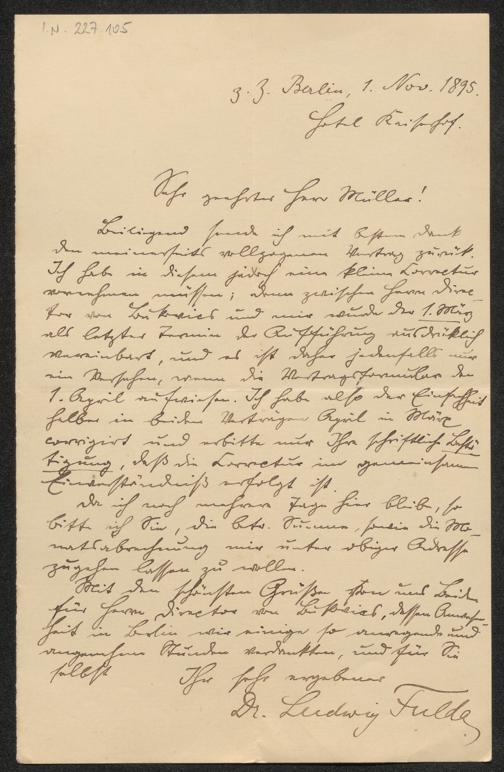 I.N. 227.105
z. Z. Berlin, 1. Nov. 1895.
Hotel Kaiserhof.
Sehr geehrter Herr Müller!
Beiliegend sende ich mit bestem Dank
den meinerseits vollzogenen Vertrag zurück.
Ich habe in diesem jedoch eine kleine Correctur
vornehmen müssen; denn zwischen Herrn Direc-
tor von Bukovics und mir wurde der 1. März
als letzter Termin der Aufführung ausdrücklich
vereinbart, und es ist daher jedenfalls nur
ein Versehen, wenn die Vertragsformulare den
1. April aufweisen. Ich habe also der Einfachheit
halber in beiden Verträgen April in März
corrigirt und erbitte nur Ihre schriftliche Bestä-
tigung, daß die Correctur im gemeinsamen
Einverständniß erfolgt ist.
Da ich noch mehrere Tage hier bleibe, so
bitte ich Sie, die betr. Summe, sowie die Mo-
natsabrechnung mir unter obiger Adresse
zugehen lassen zu wollen.
Mit den schönsten Grüßen von uns Beiden
für Herrn Director von Bukovics, dessen Anwesen-
heit in Berlin wir einige so anregende und
angenehme Stunden verdankten, und für Sie
selbst Ihr sehr ergebener
Dr. Ludwig Fulda